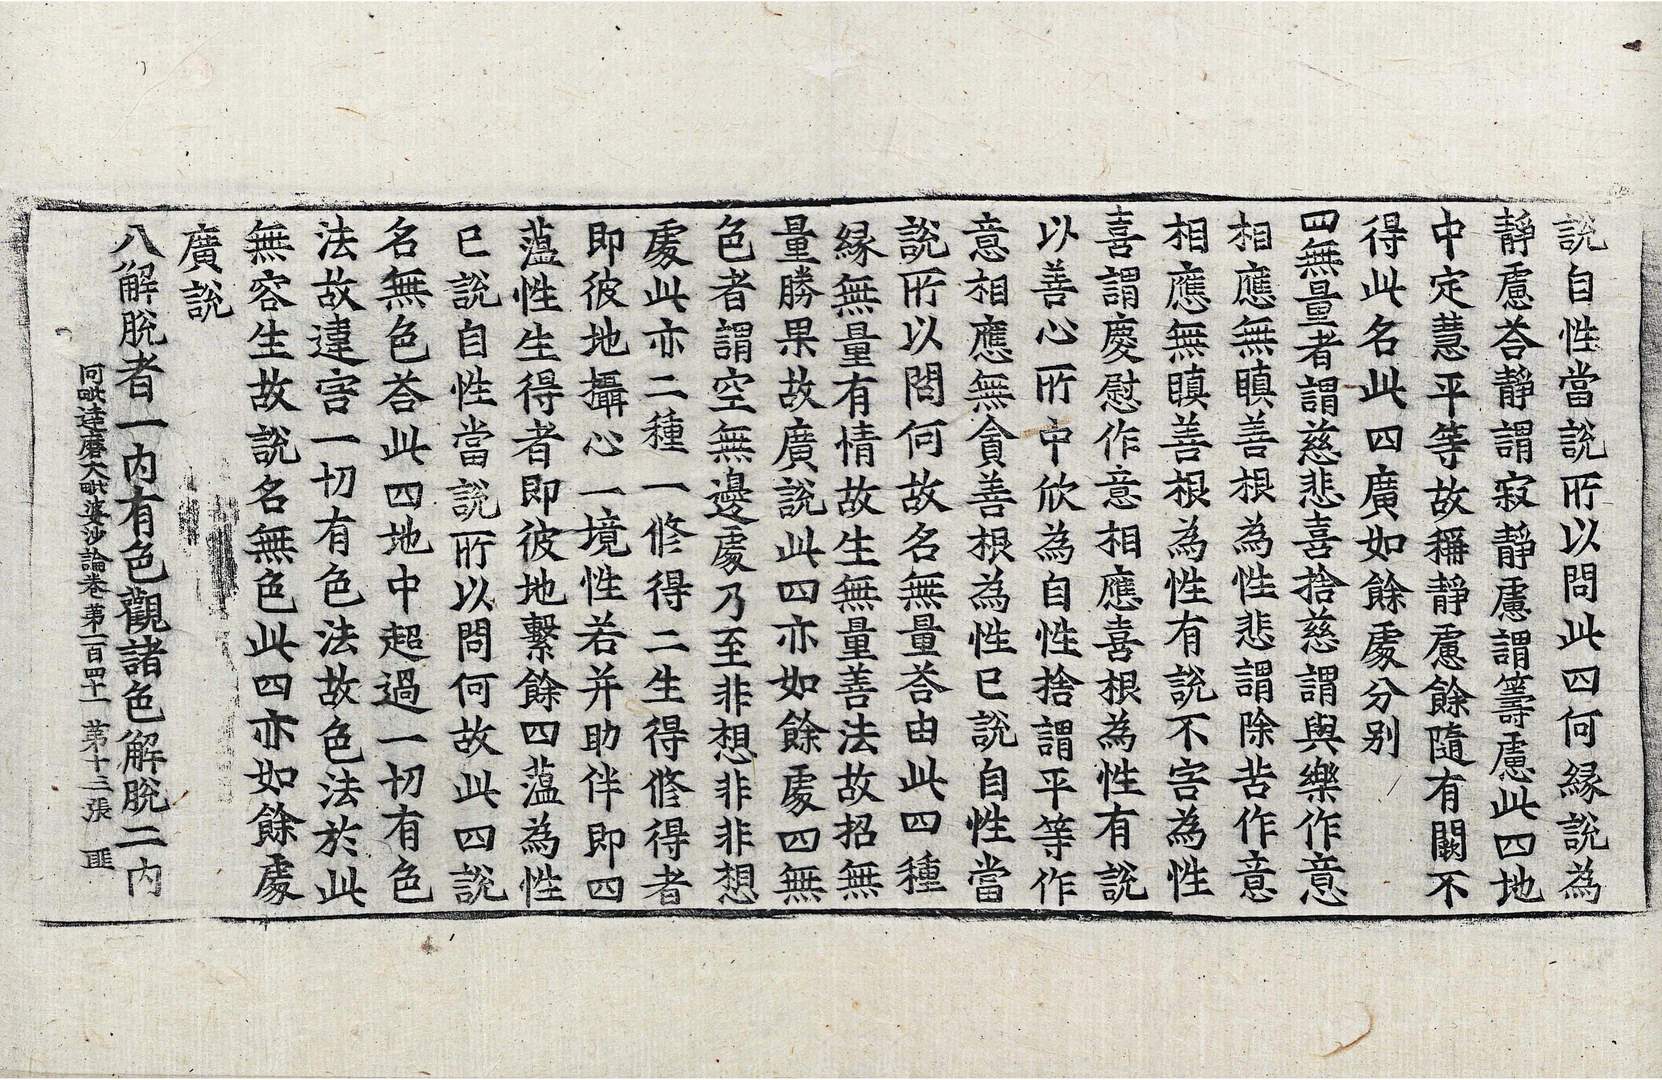 說自性當說所以問此四何縁說為
靜慮荅靜謂寂靜慮謂籌慮此四地
中定慧平等故稱靜慮餘隨有闕不
得此名此四廣如餘處分別
四無量者謂慈悲喜捨慈謂與樂作意
相應無瞋善根為性悲謂除苦作意
相應無瞋善根為性有說不害為性
喜謂慶慰作意相應喜根為性有說
以善心所中欣為自性捨謂平等作
意相應無貪善根為性已說自性當
說所以問何故名無量荅由此四種
縁無量有情故生無量善法故招無
量勝果故廣說此四亦如餘處四無
色者謂空無邊處乃至非想非非想
處此亦二種一修得二生得修得者
即彼地攝心一境性若并助伴即四
薀性生得者即彼地繫餘四薀為性
已說自性當說所以問何故此四說
名無色荅此四地中超過一切有色
法故違害一切有色法故色法於此
無容生故說名無色此四亦如餘處
廣說
八解脫者一內有色觀諸色解脫二內
阿毗達磨大毗婆沙論卷第一百四十一 第十三張 匪